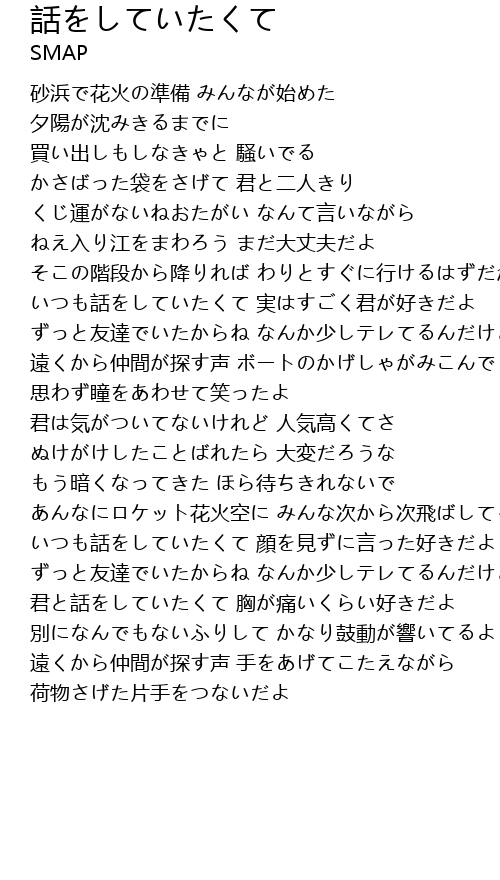 話をしていたくて
SMAP
砂浜で花火の準備 みんなが始めた
夕陽が沈みきるまでに
買い出しもしなきゃと 騒いでる
かさばった袋をさげて 君と二人きり
くじ運がないねおたがい なんて言いながら
ねえ入り江をまわろう まだ大丈夫だよ
そこの階段から降りれば わりとすぐに行けるはずだ
いつも話をしていたくて 実はすごく君が好きだよ
ずっと友達でいたからね なんか少しテレてるんだけ
遠くから仲間が探す声 ボートのかげしゃがみこんで
思わず瞳をあわせて笑ったよ
君は気がついてないけれど 人気高くてさ
ぬけがけしたことばれたら 大変だろうな
もう暗くなってきた ほら待ちきれないで
あんなにロケット花火空に みんな次から次飛ばして
いつも話をしていたくて 顔を見ずに言った好きだよ
ずっと友達でいたからね なんか少しテレてるんだけ
君と話をしていたくて 胸が痛いくらい好きだよ
別になんでもないふりして かなり鼓動が響いてるよ
遠くから仲間が探す声 手をあげてこたえながら
荷物さげた片手をつないだよ